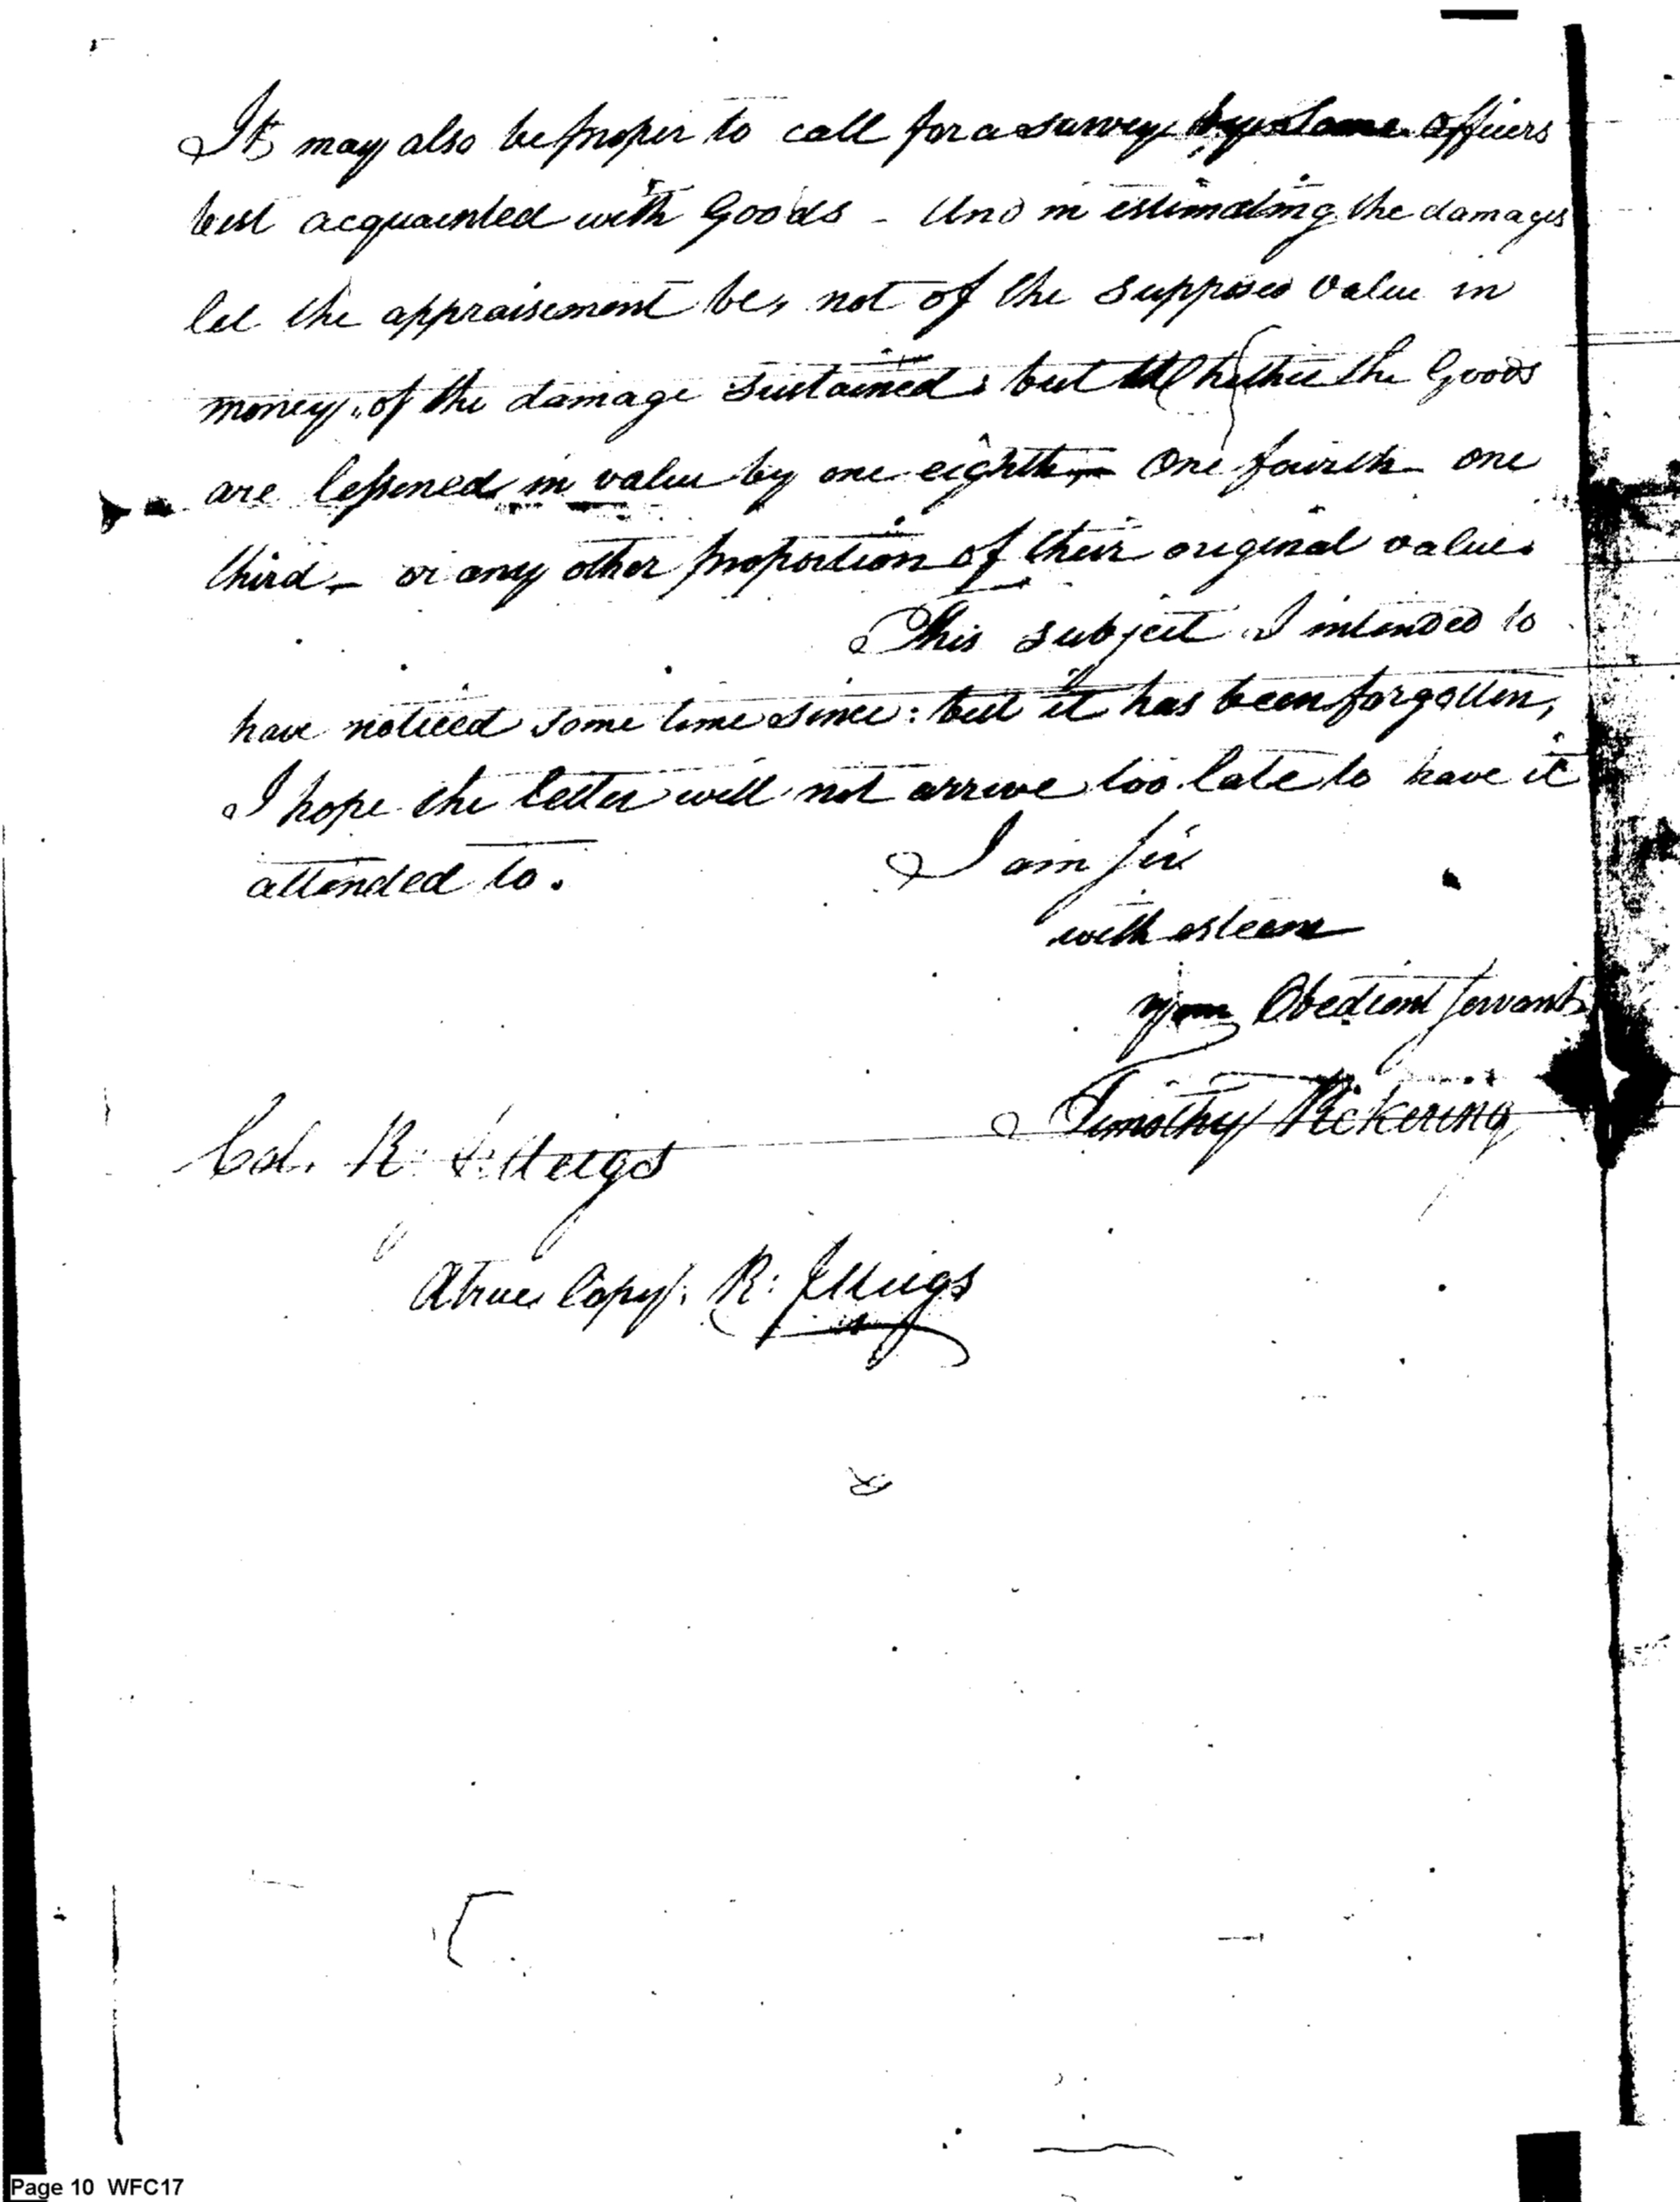 It may also be proper to call for a survey by some Officers
best acquainted with Goods - And in estimating the damages
let the appraisement be, not of the supposed value in
money, of the damage sustained; but Whether the Goods
are lessened in value by one eighth, - One fourth - one
third, - or any other proportion of their original value.
This subject I intended to
have noticed some time since: but it has been forgotten,
I hope the letter will not arrive too late to have it
attended to.
I am Sir
with esteem
your Obedient Servant
Timothy Pickering
Col. R: J: Meigs
A true Copy. R: J Meigs
Page 10 WFC17